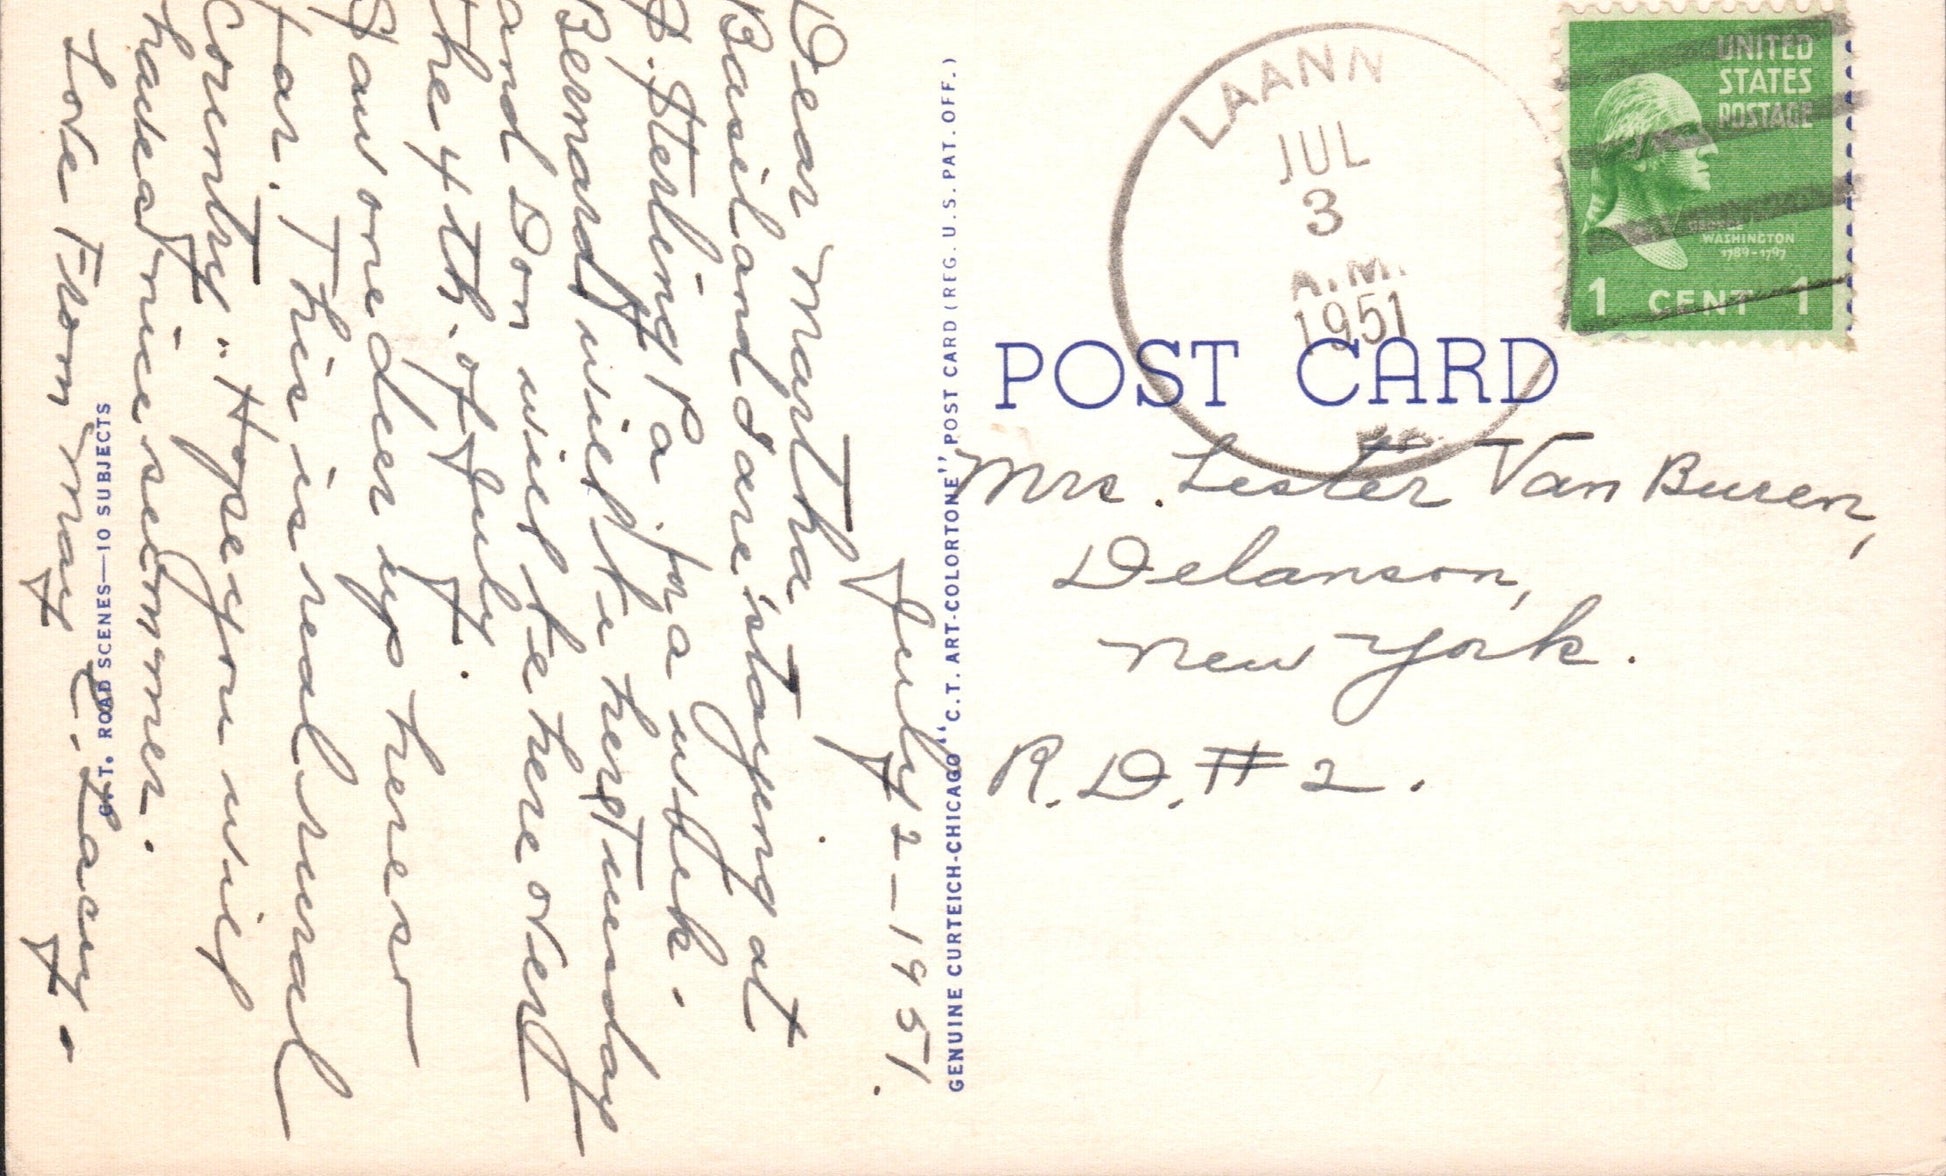 LAANN
JUL
3
A.M.
1951
UNITED
STATES
POSTAGE
GEORGE
WASHINGTON
1789-1797
1 CENT 1
POST CARD
Mrs. Lester Van Buren,
Delanson,
New York.
R.D. #2.
GENUINE CURTEICH-CHICAGO "C.T. ART-COLORTONE" POST CARD (REG. U.S. PAT. OFF.)
July 2—1951.
Dear Martha
Basil and I are staying at
S. Sterling Pa. for a week.
Bernard will be here Tuesday
and Don will be here over
the 4th. of July.
Saw one deer up here so
far. This is real rural
country. Hope you will
have a nice summer.
Love From May E. Lacey.
C.T. ROAD SCENES—10 SUBJECTS